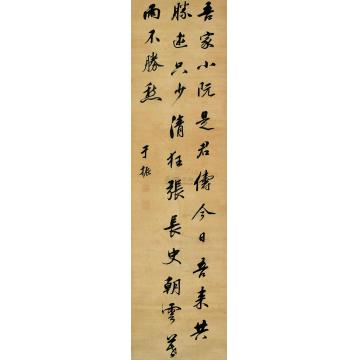 吾家小阮是君俦今日吾来共
胜游只少清狂張長史朝雲暮
雨不勝愁
于振